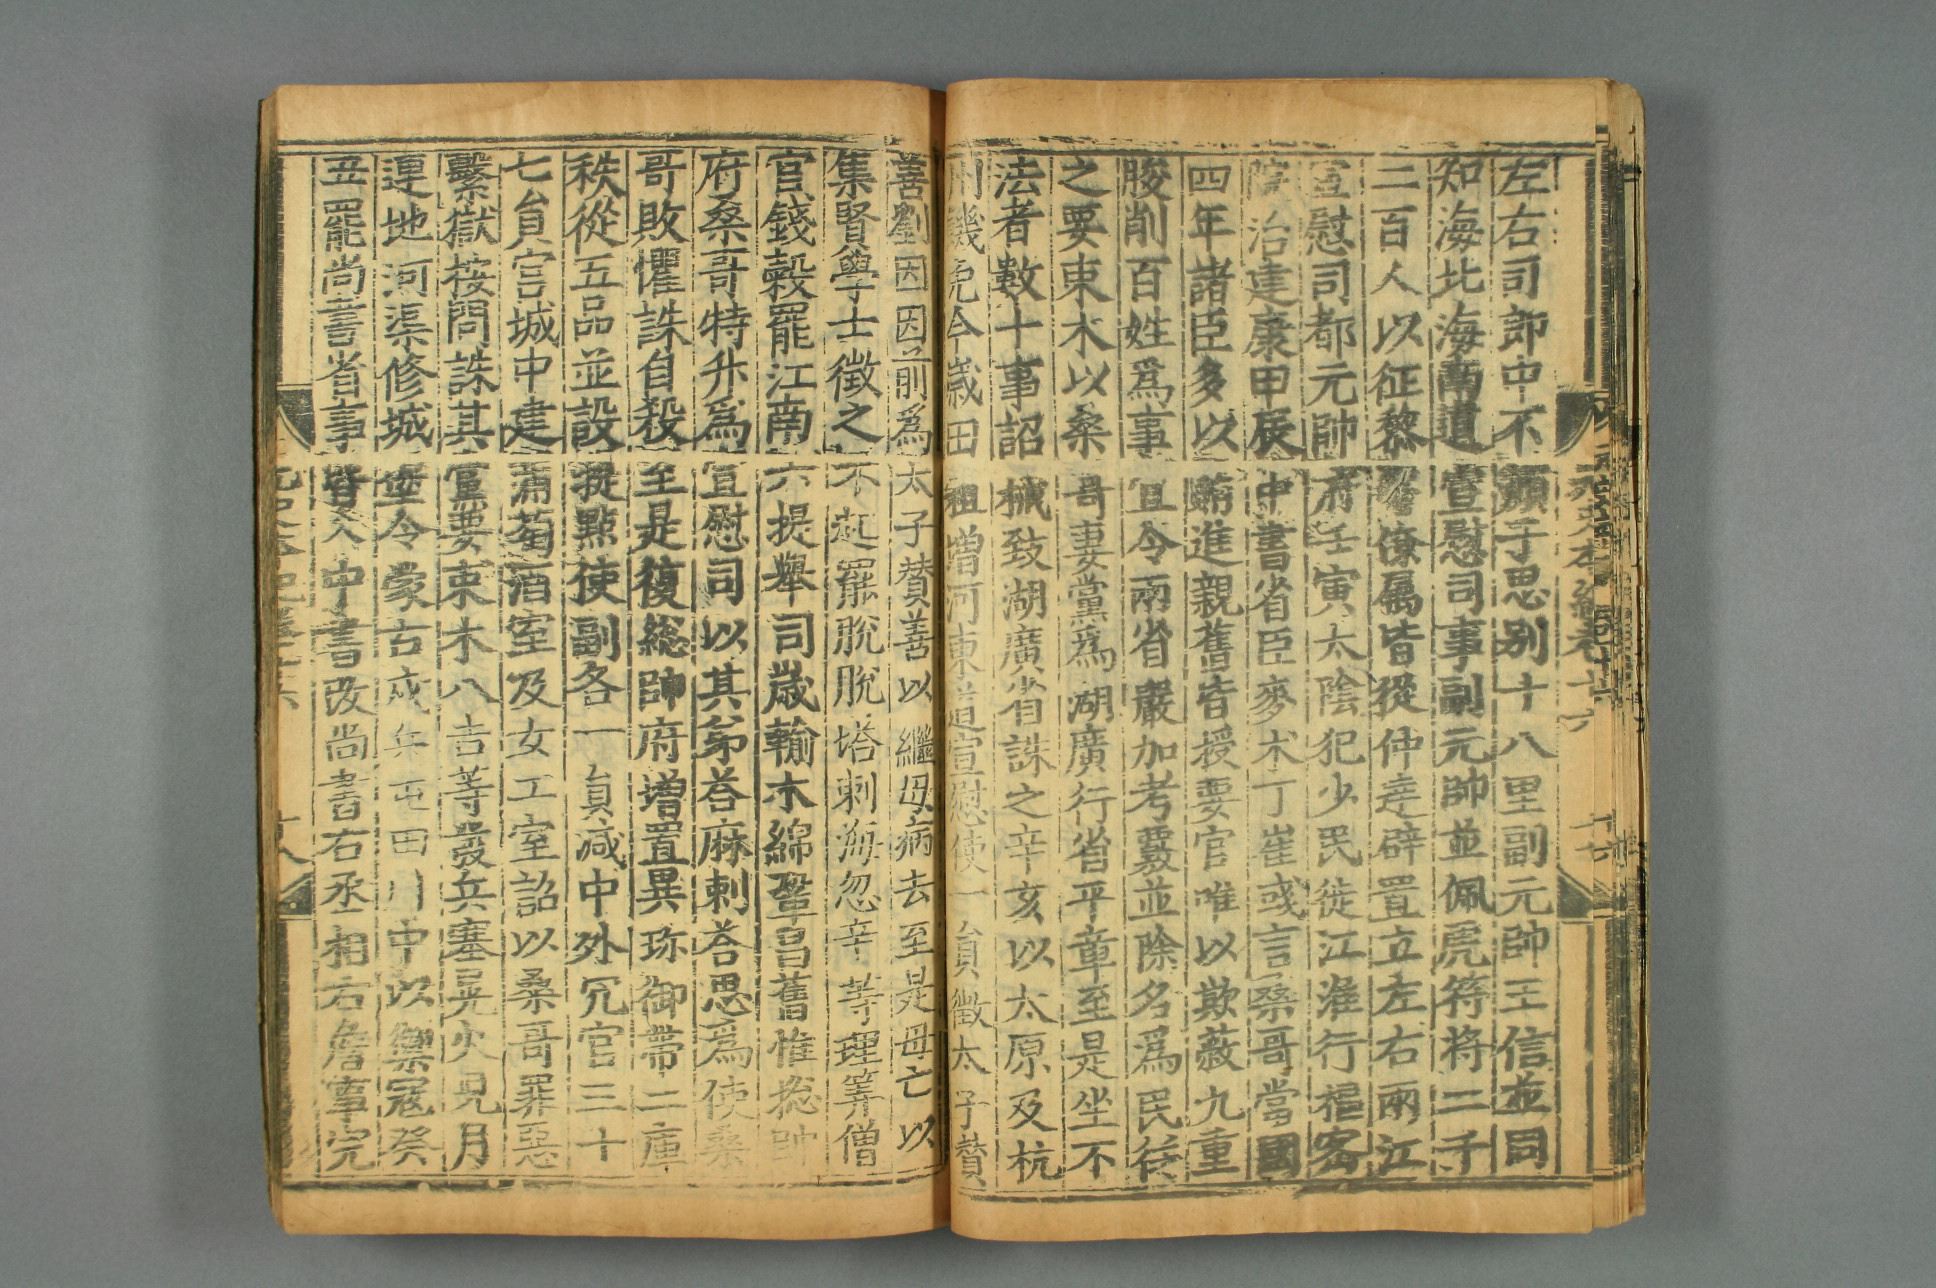 左右司郎中不顏于思别十八里副元帥王信並同
知海北海南道宣慰司事副元帥並佩虎符將二千
二百人以征黎僚屬皆從仲達辟置立左右兩江
宣慰司都元帥府壬寅太陰犯少民徙江淮行樞密
院治建康甲辰中書省臣麥术丁崔彧言桑哥當國
四年諸臣多以賄進親舊皆授要官唯以欺蔽九重
朘削百姓爲事宜令兩省嚴加考覈並除名爲民從
之要束木以桑哥妻黨爲湖廣行省平章至是坐不
法者數十事詔械致湖廣省誅之辛亥以太原及杭
州饑免今歲田租增河東道宣慰使一員徵太子賛
善劉因因前爲太子賛善以繼母病去至是母亡以
集賢學士徵之不起罷脫脫塔剌海忽辛等理筭僧
官錢穀罷江南六提舉司歲輸木綿鞏昌舊惟総帥
府桑哥特升爲宣慰司以其弟荅麻剌荅思爲使桑
哥敗懼誅自殺至是復総帥府增置異珎御帶二庫
秩從五品並設提點使副各一員减中外冗官三十
七員宫城中建蒲萄酒室及女工室詔以桑哥罪惡
繫獄按問誅其黨要束木八吉等發兵塞晃火兒月
連地河渠修城堡令蒙古戍年屯田川中以禦寇癸
丑罷尚書省事皆入中書改尚書右丞相右詹事完
元史本紀卷十六
十七
十八